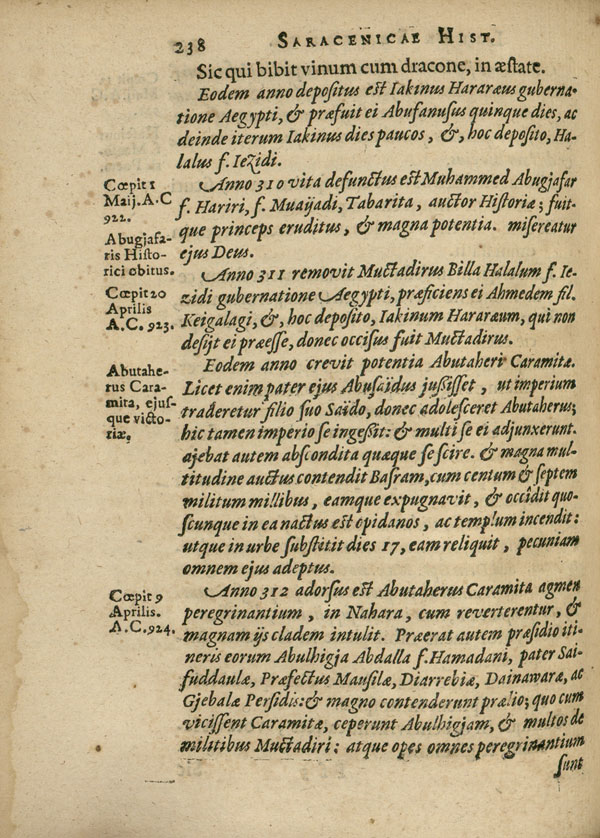 238 SARACENICAE HIST.
Sic qui bibit vinum cum dracone, in æstate.
Eodem anno depositus est Iakinus Hararæus guberna-
tione Aegypti, & præfuit ei Abusanusus quinque dies, ac
deinde iterum Iakinus dies paucos, &, hoc deposito, Ha-
lalus f. Iezidi.
Cœpit 1
Maij. A.C
922.
Abugjafa-
ris Histo-
rici obitus.
Anno 310 vita defunctus est Muhammed Abugjafar
f. Hariri, f. Muaijadi, Tabarita, auctor Historiæ; fuit-
que princeps eruditus, & magna potentia. misereatur
ejus Deus.
Cœpit 20
Aprilis
A.C. 923.
Anno 311 removit Muctadirus Billa Halalum f. Ie-
zidi gubernatione Aegypti, præficiens ei Ahmedem fil.
Keigalagi, &, hoc deposito, Iakinum Hararæum, qui non
desijt ei præesse, donec occisus fuit Muctadirus.
Abutahe-
rus Cara-
mita, ejus-
que victo-
riæ.
Eodem anno crevit potentia Abutaheri Caramitæ.
Licet enim pater ejus Abusaidus jussisset, ut imperium
traderetur filio suo Saïdo, donec adolesceret Abutaherus;
hic tamen imperio se ingessit: & multi se ei adjunxerunt.
ajebat autem abscondita quæque se scire. & magna mul-
titudine auctus contendit Basram, cum centum & septem
militum millibus, eamque expugnavit, & occîdit quo-
scunque in ea nactus est opidanos, ac templum incendit:
utque in urbe substitit dies 17, eam reliquit, pecuniam
omnem ejus adeptus.
Cœpit 9
Aprilis.
A.C. 924.
Anno 312 adorsus est Abutaherus Caramita agmen
peregrinantium, in Nahara, cum reverterentur, &
magnam ijs cladem intulit. Præerat autem præsidio iti-
neris eorum Abulhigja Abdalla f. Hamadani, pater Sai-
fuddaulæ, Præfectus Mausilæ, Diarrebiæ, Dainawaræ, ac
Gjebalæ Persidis: & magno contenderunt prælio; quo cum
vicissent Caramitæ, ceperunt Abulhigjam, & multos de
militibus Muctadiri: atque opes omnes peregrinantium
sunt